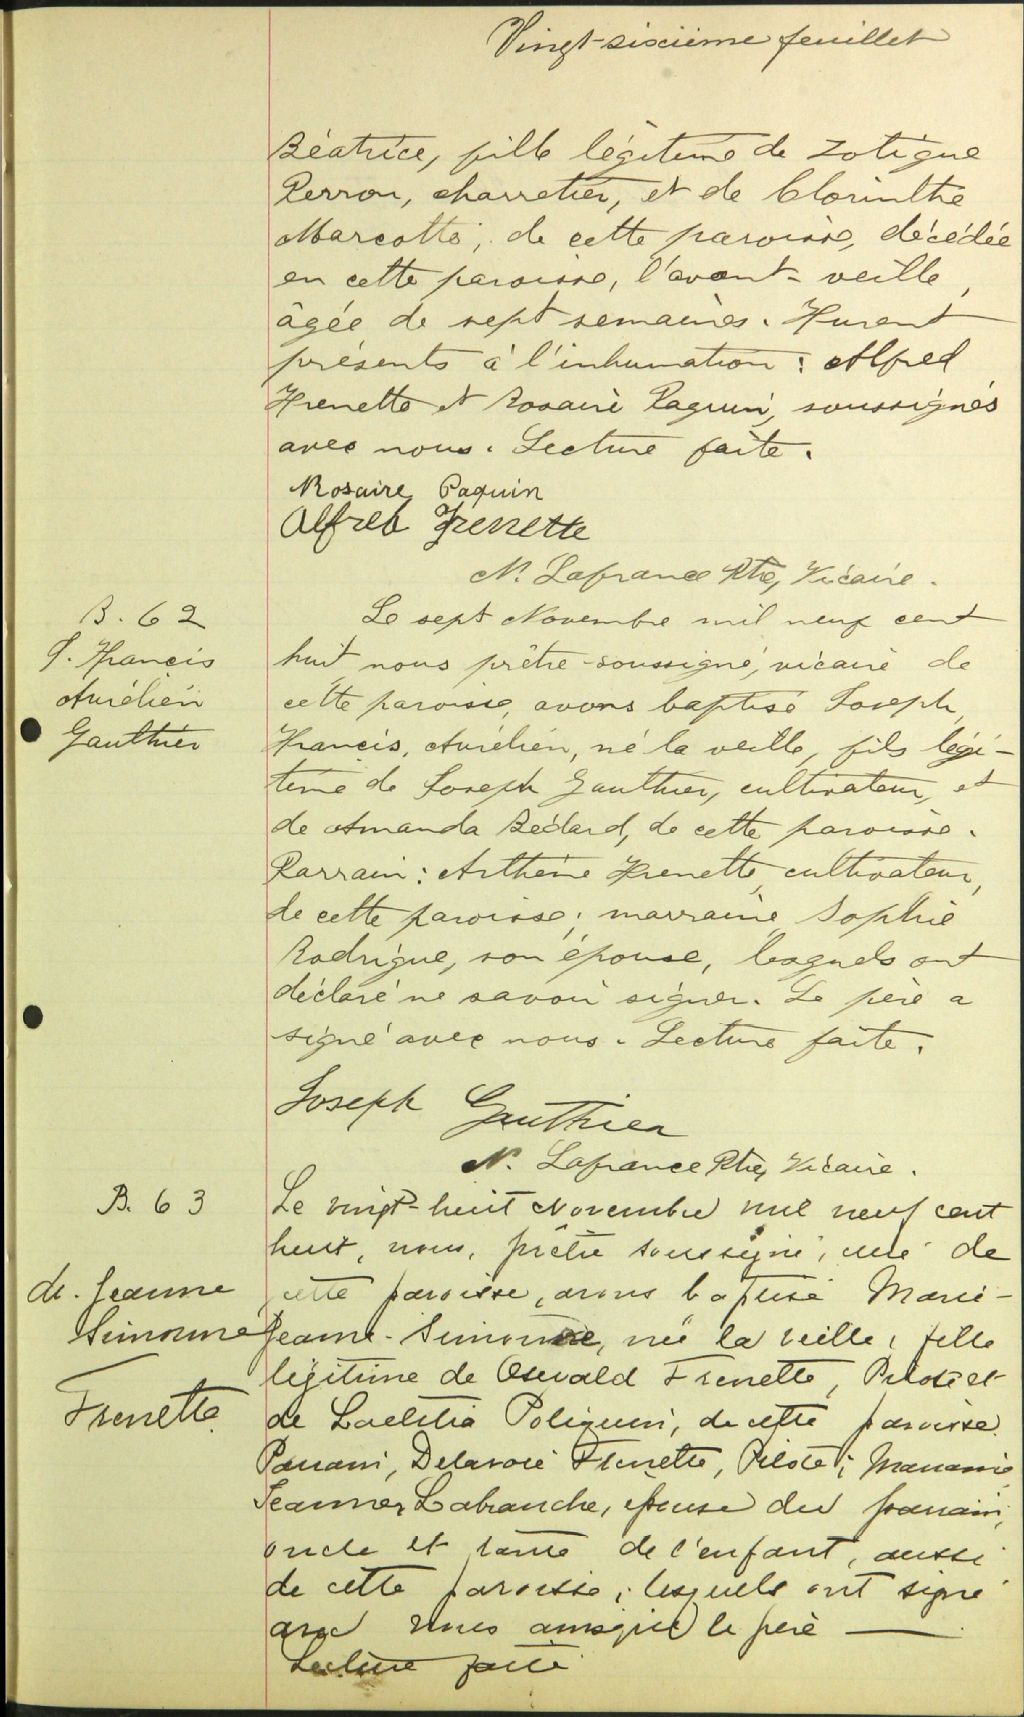 Vingt-sixième feuillet
Béatrice, fille légitime de Zotique
Perron, charretier, et de Clorinthe
Marcotte, de cette paroisse, décédée
en cette paroisse, l'avant-veille,
âgée de sept semaines. Furent
présents à l'inhumation : Alfred
Frenette et Rosaire Paquin, soussignés
avec nous. Lecture faite.
Rosaire Paquin
Alfred Frenette
N. Lafrance Ptre, Vicaire.
B. 62
J. Francis
Aurélien
Gauthier
Le sept Novembre mil neuf cent
huit nous prêtre-soussigné, vicaire de
cette paroisse, avons baptisé Joseph,
Francis, Aurélien, né la veille, fils légi-
time de Joseph Gauthier, cultivateur, et
de Amanda Bédard, de cette paroisse.
Parrain : Arthème Frenette, cultivateur,
de cette paroisse ; marraine Sophie
Rodrigue, son épouse, lesquels ont
déclaré ne savoir signer. Le père a
signé avec nous. Lecture faite.
Joseph Gauthier
N. Lafrance Ptre, Vicaire.
B. 63
M. Jeanne
Simonne
Frenette
Le vingt-huit Novembre mil neuf cent
huit, nous, prêtre soussigné, curé de
cette paroisse, avons baptisé Marie-
Jeanne-Simonne, née la veille, fille
légitime de Oswald Frenette, Pilote et
de Laetitia Poliquin, de cette paroisse.
Parrain, Frenette, Pilote ; Marraine
Labranche, épouse du parrain,
oncle et tante de l'enfant, aussi
de cette paroisse ; lesquels ont signé
avec nous ainsi que le père —
Lecture faite